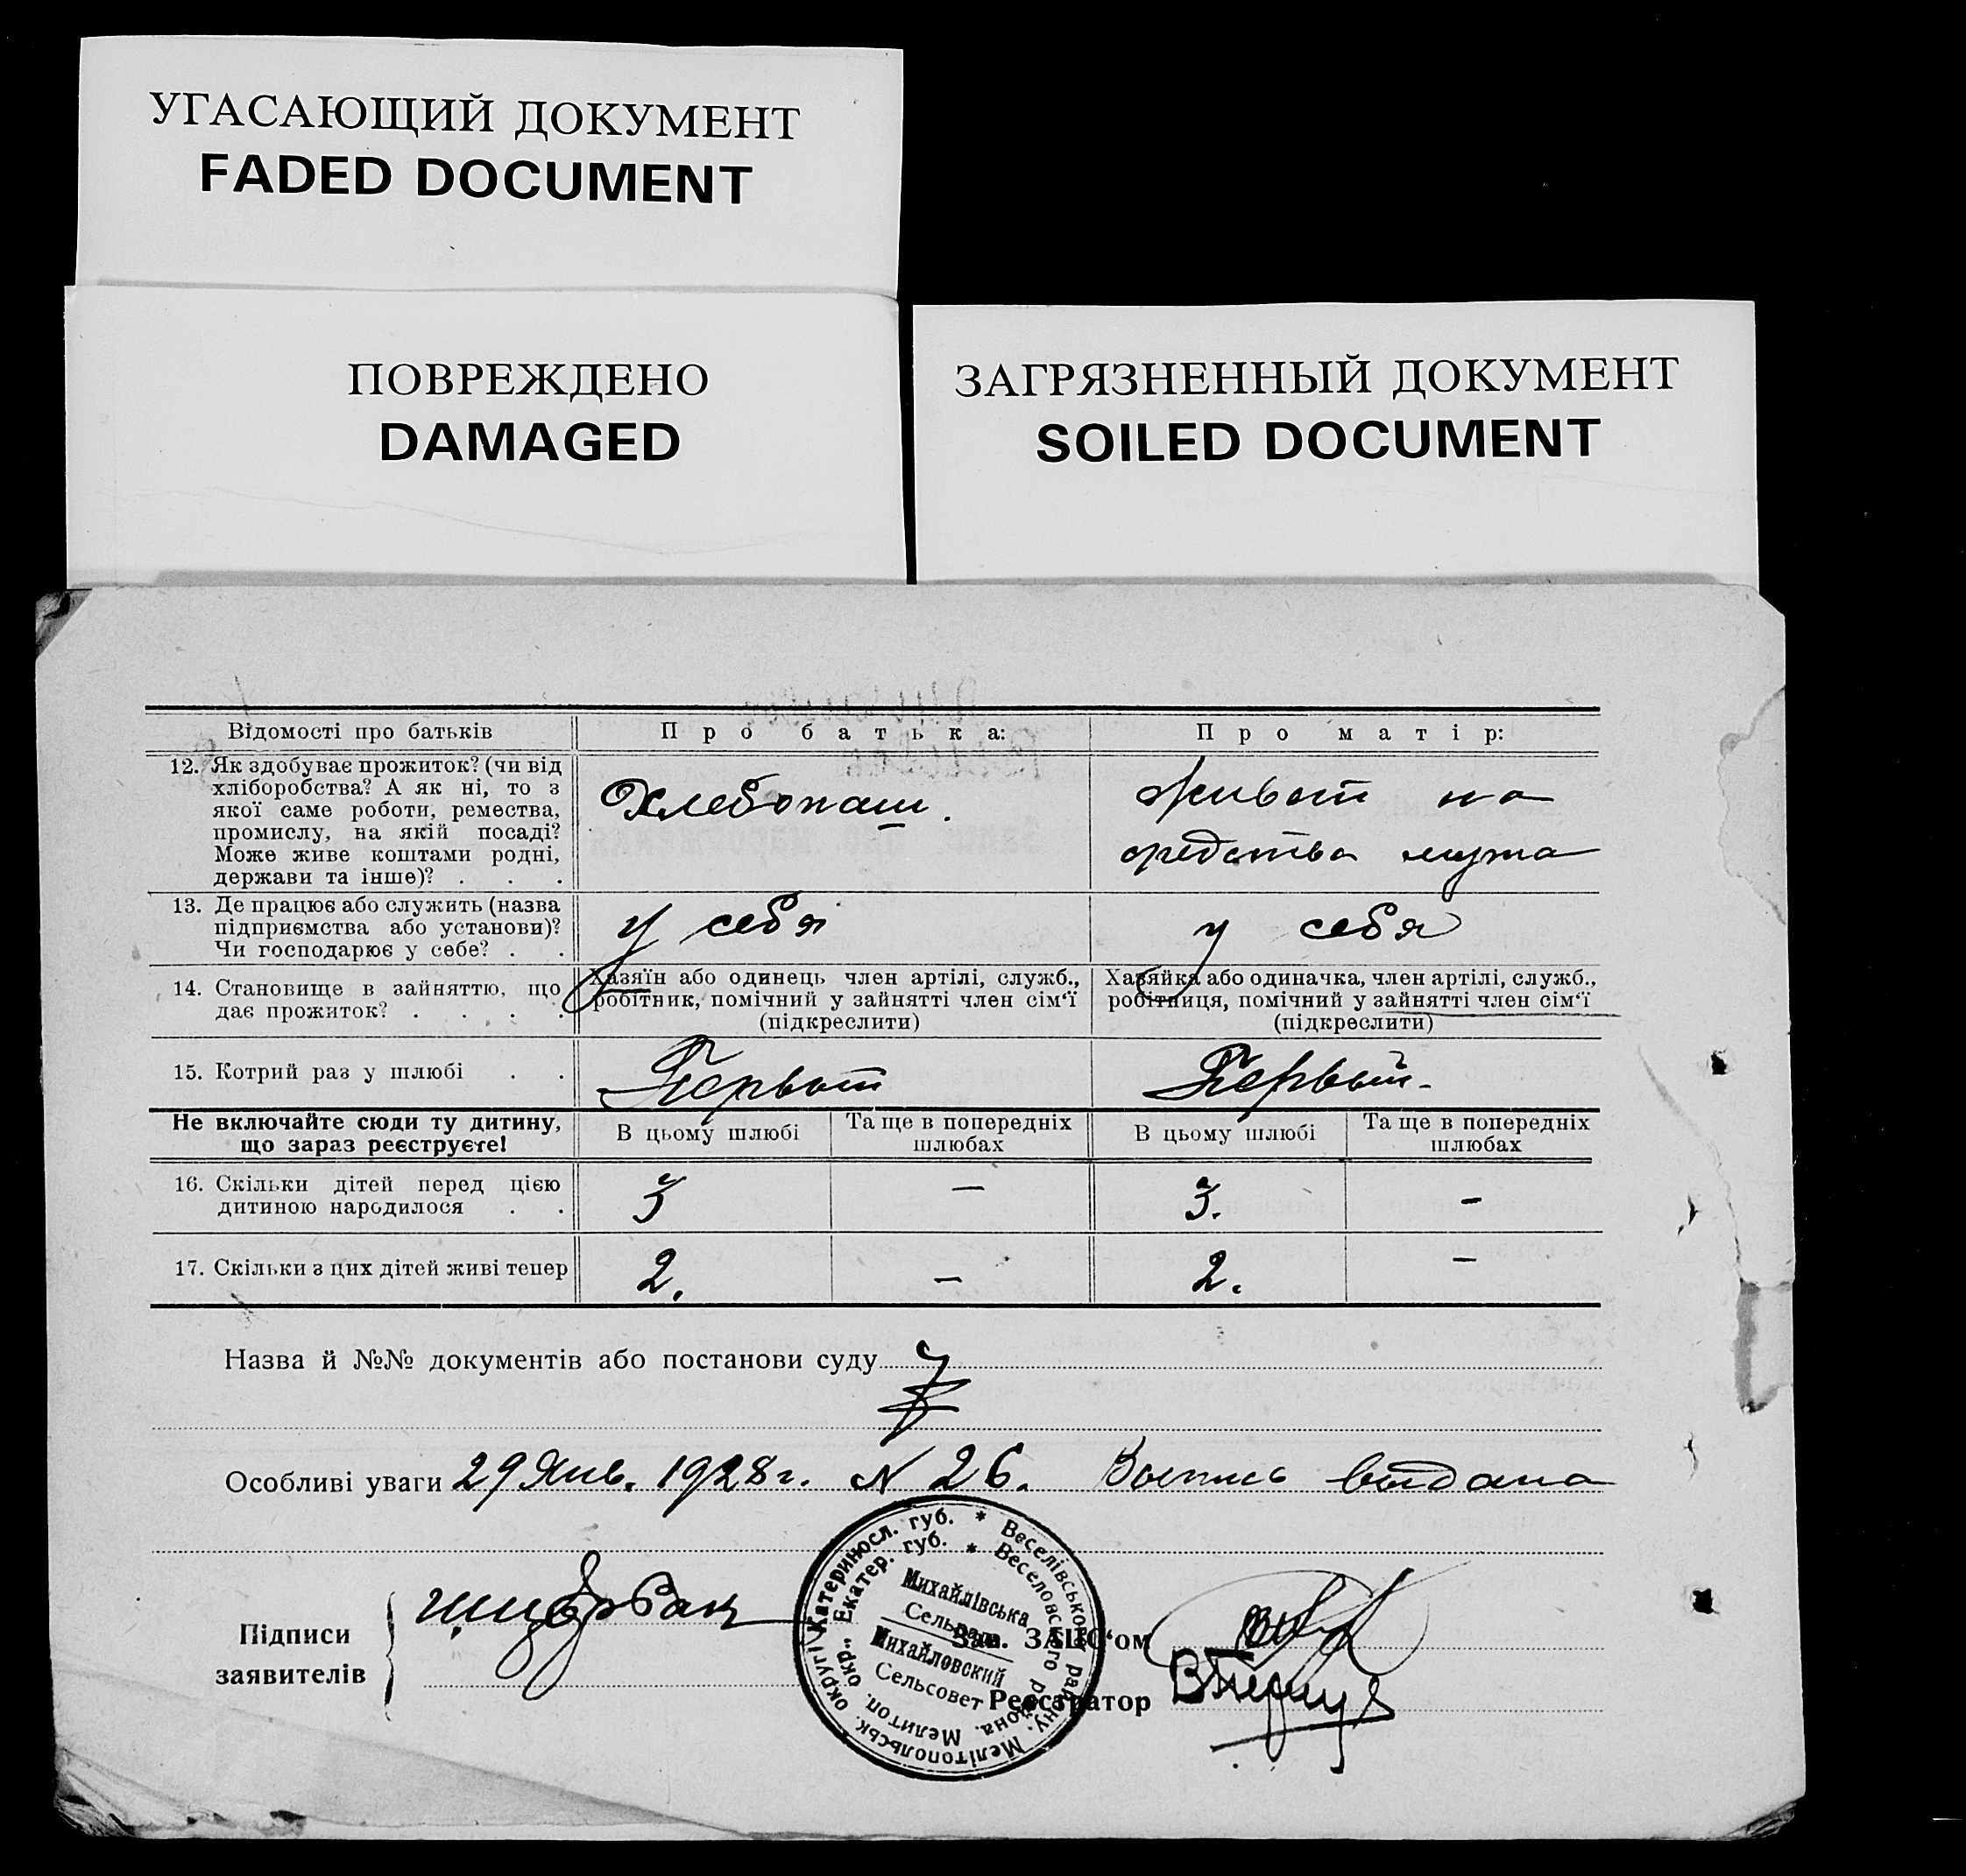 УГАСАЮЩИЙ ДОКУМЕНТ
FADED DOCUMENT
ПОВРЕЖДЕНО
DAMAGED
ЗАГРЯЗНЕННЫЙ ДОКУМЕНТ
SOILED DOCUMENT
Відомості про батьків
Про батька:
Про матір:
12. Як здобуває прожиток? (чи від
хліборобства? А як ні, то з
якої саме роботи, ремества,
промислу, на якій посаді?
Може живе коштами родні,
держави та інше)? . . .
Хлебопаш.
живет на
средства мужа
13. Де працює або служить (назва
підприємства або установи)?
Чи господарює у себе? . .
у себя
у себя
14. Становище в зайняттю, що
дає прожиток? . . . .
Хазяїн або одинець член артілі, служб.,
робітник, помічний у зайнятті член сім'ї
(підкреслити)
Хазяйка або одиначка, член артілі, служб.,
робітниця, помічний у зайнятті член сім'ї
(підкреслити)
15. Котрий раз у шлюбі . .
Первый
Первый
Не включайте сюди ту дитину,
що зараз реєструєте!
В цьому шлюбі
Та ще в попередніх
шлюбах
В цьому шлюбі
Та ще в попередніх
шлюбах
16. Скільки дітей перед цією
дитиною народилося . .
3
—
3.
-
17. Скільки з цих дітей живі тепер
2.
—
2.
—
Назва й №№ документів або постанови суду
Особливі уваги 29 Янв. 1928 г. N 26. Выпись выдана
Підписи
заявителів
Щербак
Катериносл. губ. * Веселівського району, Мелітопольськ. округі
Екатер. губ. * Веселовского района. Мелитоп. окр.
Михайлівська
Сельрада
Михайловский
Сельсовет
Зав. ЗАЦС'ом
Реєстратор